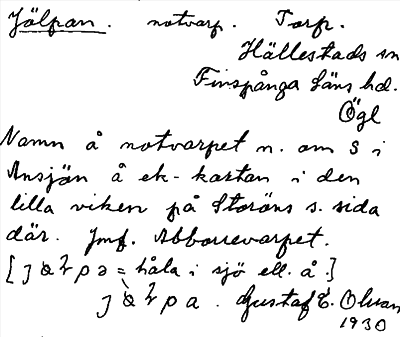 Jälpan. notvarp. Torp.
Hällestads sn
Finspånga läns hd.
Ögl
Namn å notvarpet n. om S i
Ansjön å ek-kartan i den
lilla viken på Storöns s. sida
där. Jmf. Abborrevarpet.
= håla i sjö ell. å.]
Gustaf E. Olson
1930